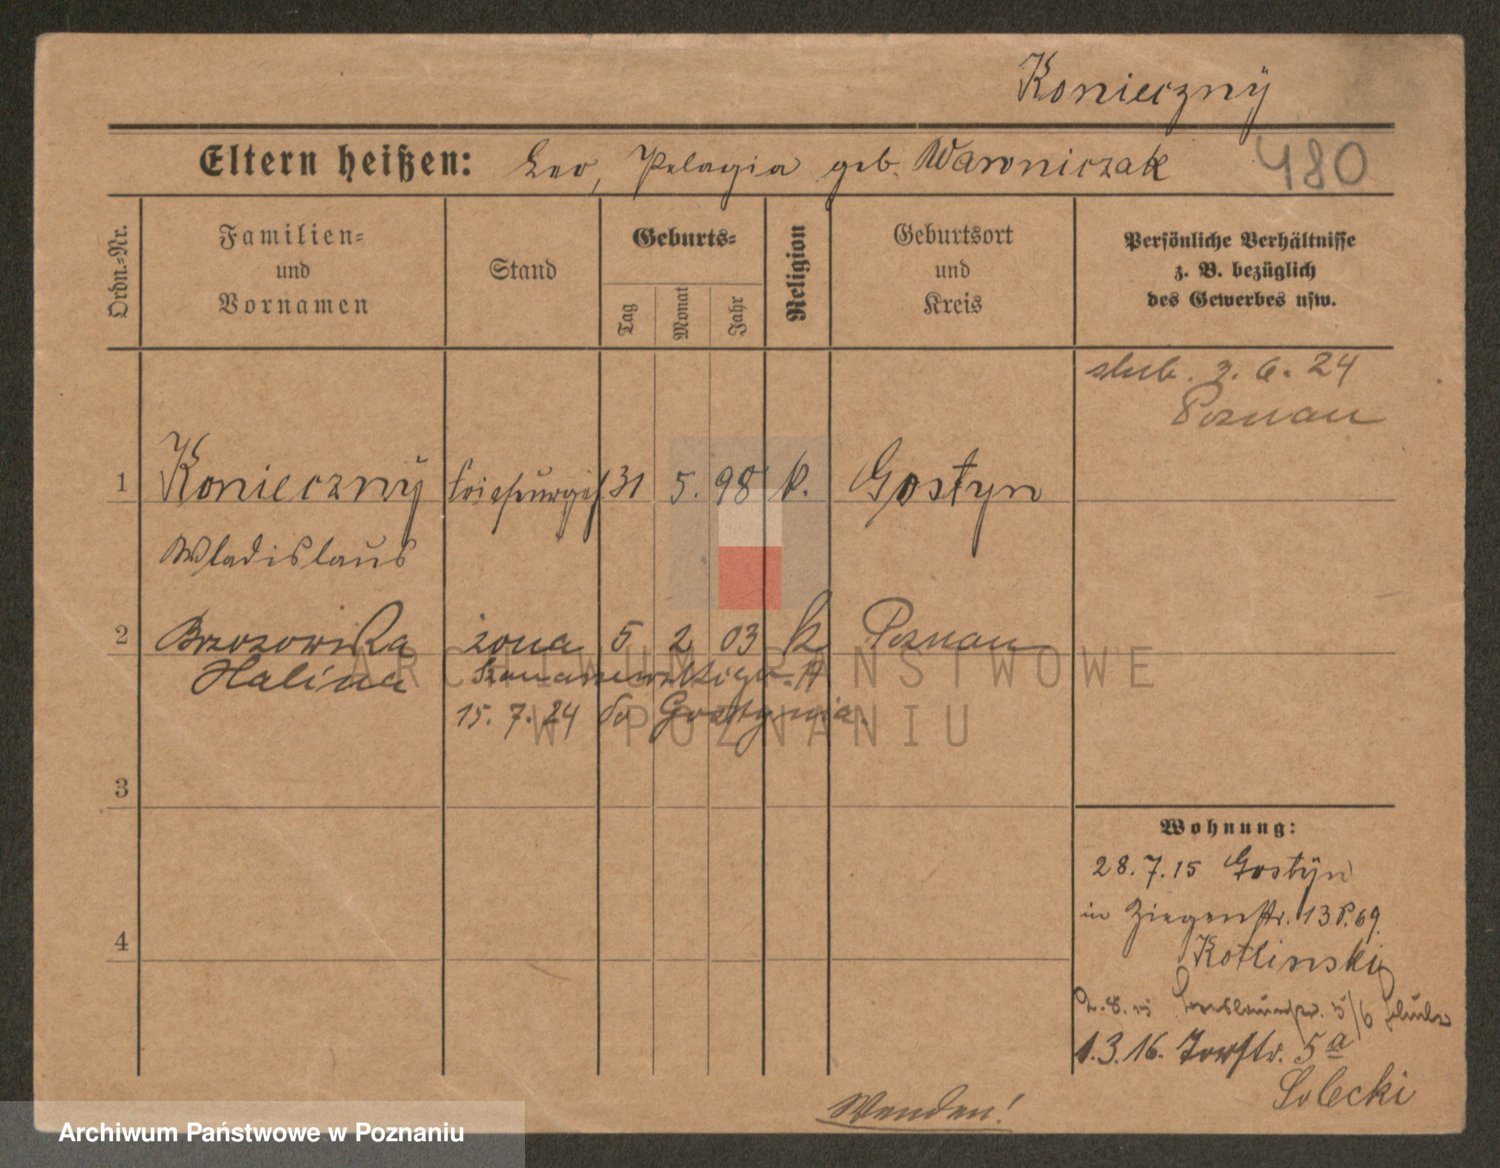 Konieczny
Eltern heißen: Leo, Pelagia geb. Wawroniczak 480
Ordn.-Nr.
Familien-
und
Vornamen
Stand
Geburts-
Tag
Monat
Jahr
Religion
Geburtsort
und
Kreis
Persönliche Verhältnisse
z. B. bezüglich
des Gewerbes usw.
ślub. 3. 6. 24
Poznań
1 Konieczny 31 5. 98 k. Gostyn
Wladislaus
2 Brzozowska żona 5 2 03 k Poznań
Halina
15. 7. 24 do Gostynia.
3
4
Wohnung:
28. 7. 15 Gostyn
in Ziegenstr. 13 P. 69.
Kotlinski
5/6
1. 3. 16. Torstr. 5a
Solecki
Wenden!
ARCHIWUM PAŃSTWOWE
W POZNANIU
Archiwum Państwowe w Poznaniu